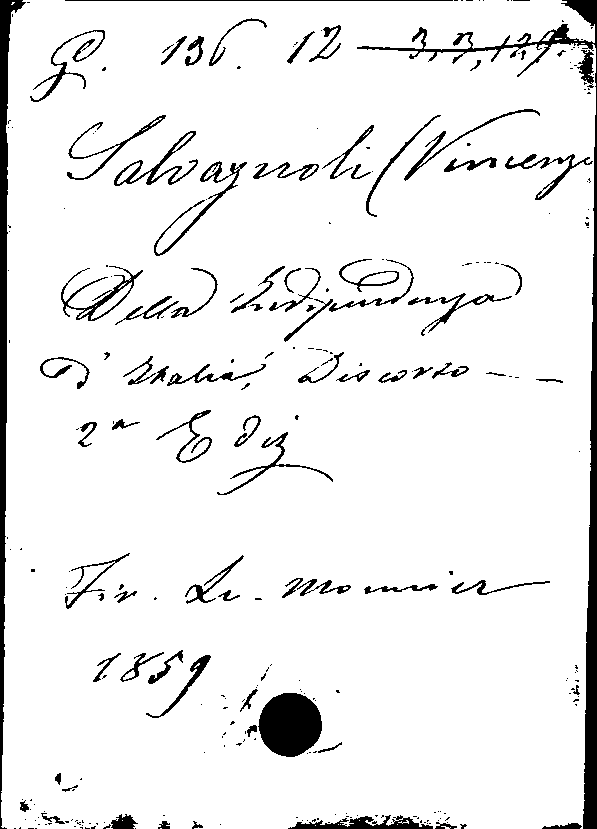 G. 136. 12 3,3,127.
Salvagnoli (Vincenzo
Della Indipendenza
d'Italia, Discorso - -
2ª Ediz
Fir. Le-Monnier
1859